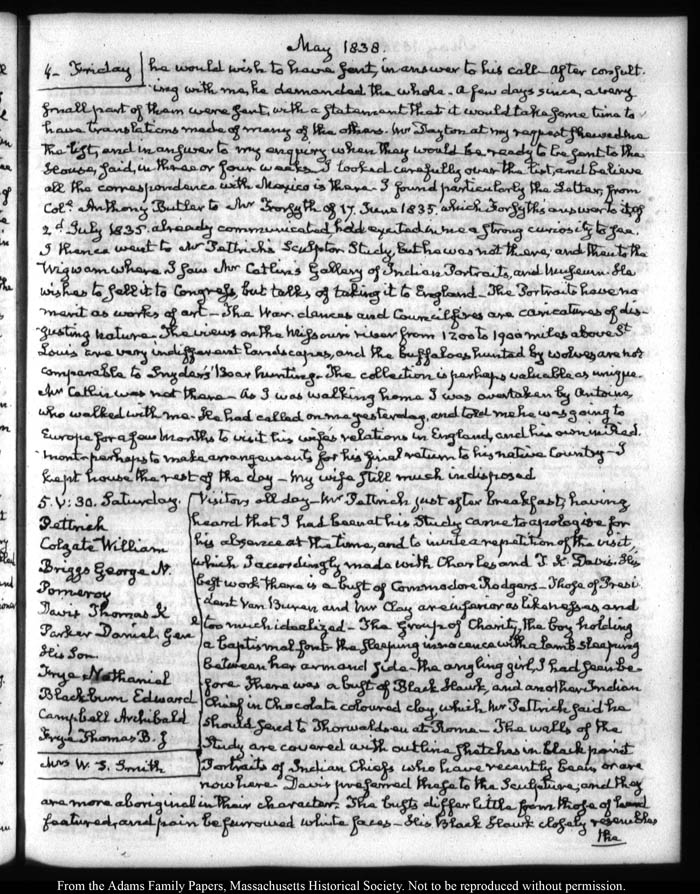 May 1838.
4. Friday he would wish to have sent, in answer to his call. After consult-
ing with me, he demanded the whole. A few days since, a very
small part of them were sent, with a statement that it would take some time to
have translations made of many of the others. Mr Dayton at my request shewed me
the list, and in answer to my enquiry when they would be ready to be sent to the
House, said, in three or four weeks. I looked carefully over the list, and believe
all the correspondence with Mexico is there. I found particularly the Letter, from
Col.l Anthony Butler to Mr Forsyth of 17. June 1835. which Forsyth's answer to it, of
2.d July 1835. already communicated, had excited in me a strong curiosity to see.
I thence went to Mr Pettrich's Sculptor Study, but he was not there; and then to the
Wigwam where I saw Mr Catlin's Gallery of Indian Portraits, and Museum. He
wishes to sell it to Congress, but talks of taking it to England. The Portraits have no
merit as works of art. The War dances and Council fires are caricatures of dis-
gusting nature. The views on the Missouri river from 1200 to 1900 miles above St
Louis are very indifferent landscapes, and the buffaloes hunted by wolves are not
comparable to Snyders' Boar hunting. The collection is perhaps valuable as unique.
Mr Catlin was not there. As I was walking home I was overtaken by Antoine,
who walked with me. He had called on me yesterday, and told me he was going to
Europe for a few months to visit his wife's relations in England, and his own in Pied-
mont perhaps to make arrangements for his final return to his native Country. I
kept house the rest of the day. My wife still much indisposed
5. V: 30. Saturday. Visitors all day. Mr Pettrich just after breakfast, having
Pettrich heard that I had been at his Study came to apologise for
Colgate William his absence at the time, and to invite a repetition of the visit,
Briggs George N. which I accordingly made with Charles and T. K. Davis. His
Pomeroy best work there is a bust of Commodore Rodgers. Those of Presi-
Davis Thomas K dent Van Buren and Mr Clay are inferior as likenesses, and
Parker Daniel. Gen too much idealized. The Group of Charity, the boy holding
His Son. a baptismal font the sleeping innocence with a lamb sleeping
Frye Nathaniel between her arm and side. the angling girl, I had seen be-
Blackburn Edward fore. There was a bust of Black Hawk, and another Indian
Campbell Archibald Chief in Chocolate coloured clay, which Mr Pettrich said he
Frye Thomas B. J should send to Thorwaldsen at Rome. The walls of the
Mrs W. S. Smith Study are covered with outline sketches in black paint
Portraits of Indian Chiefs who have recently been or are
now here. Davis preferred these to the Sculpture; and they
are more aboriginal in their character. The busts differ little from those of hard
featured, and pain befurrowed white faces. His Black Hawk closely resembles
the
From the Adams Family Papers, Massachusetts Historical Society. Not to be reproduced without permission.